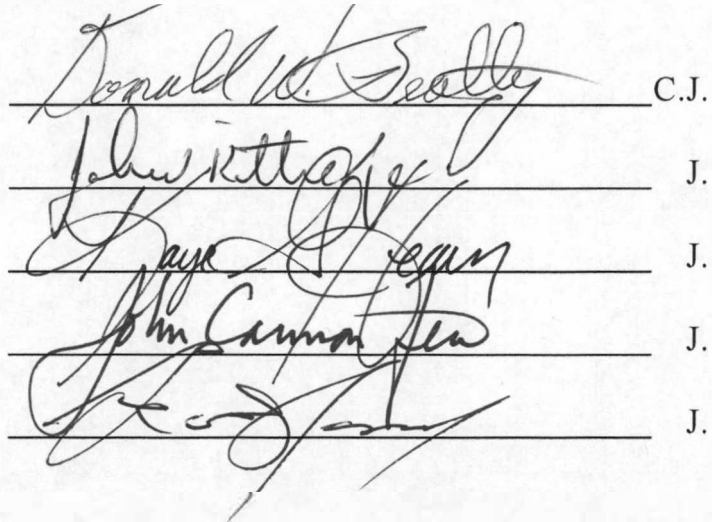 Donald W. Beatty C.J.
John Kittredge J.
Kaye G. Hearn J.
John Cannon Few J.
J.